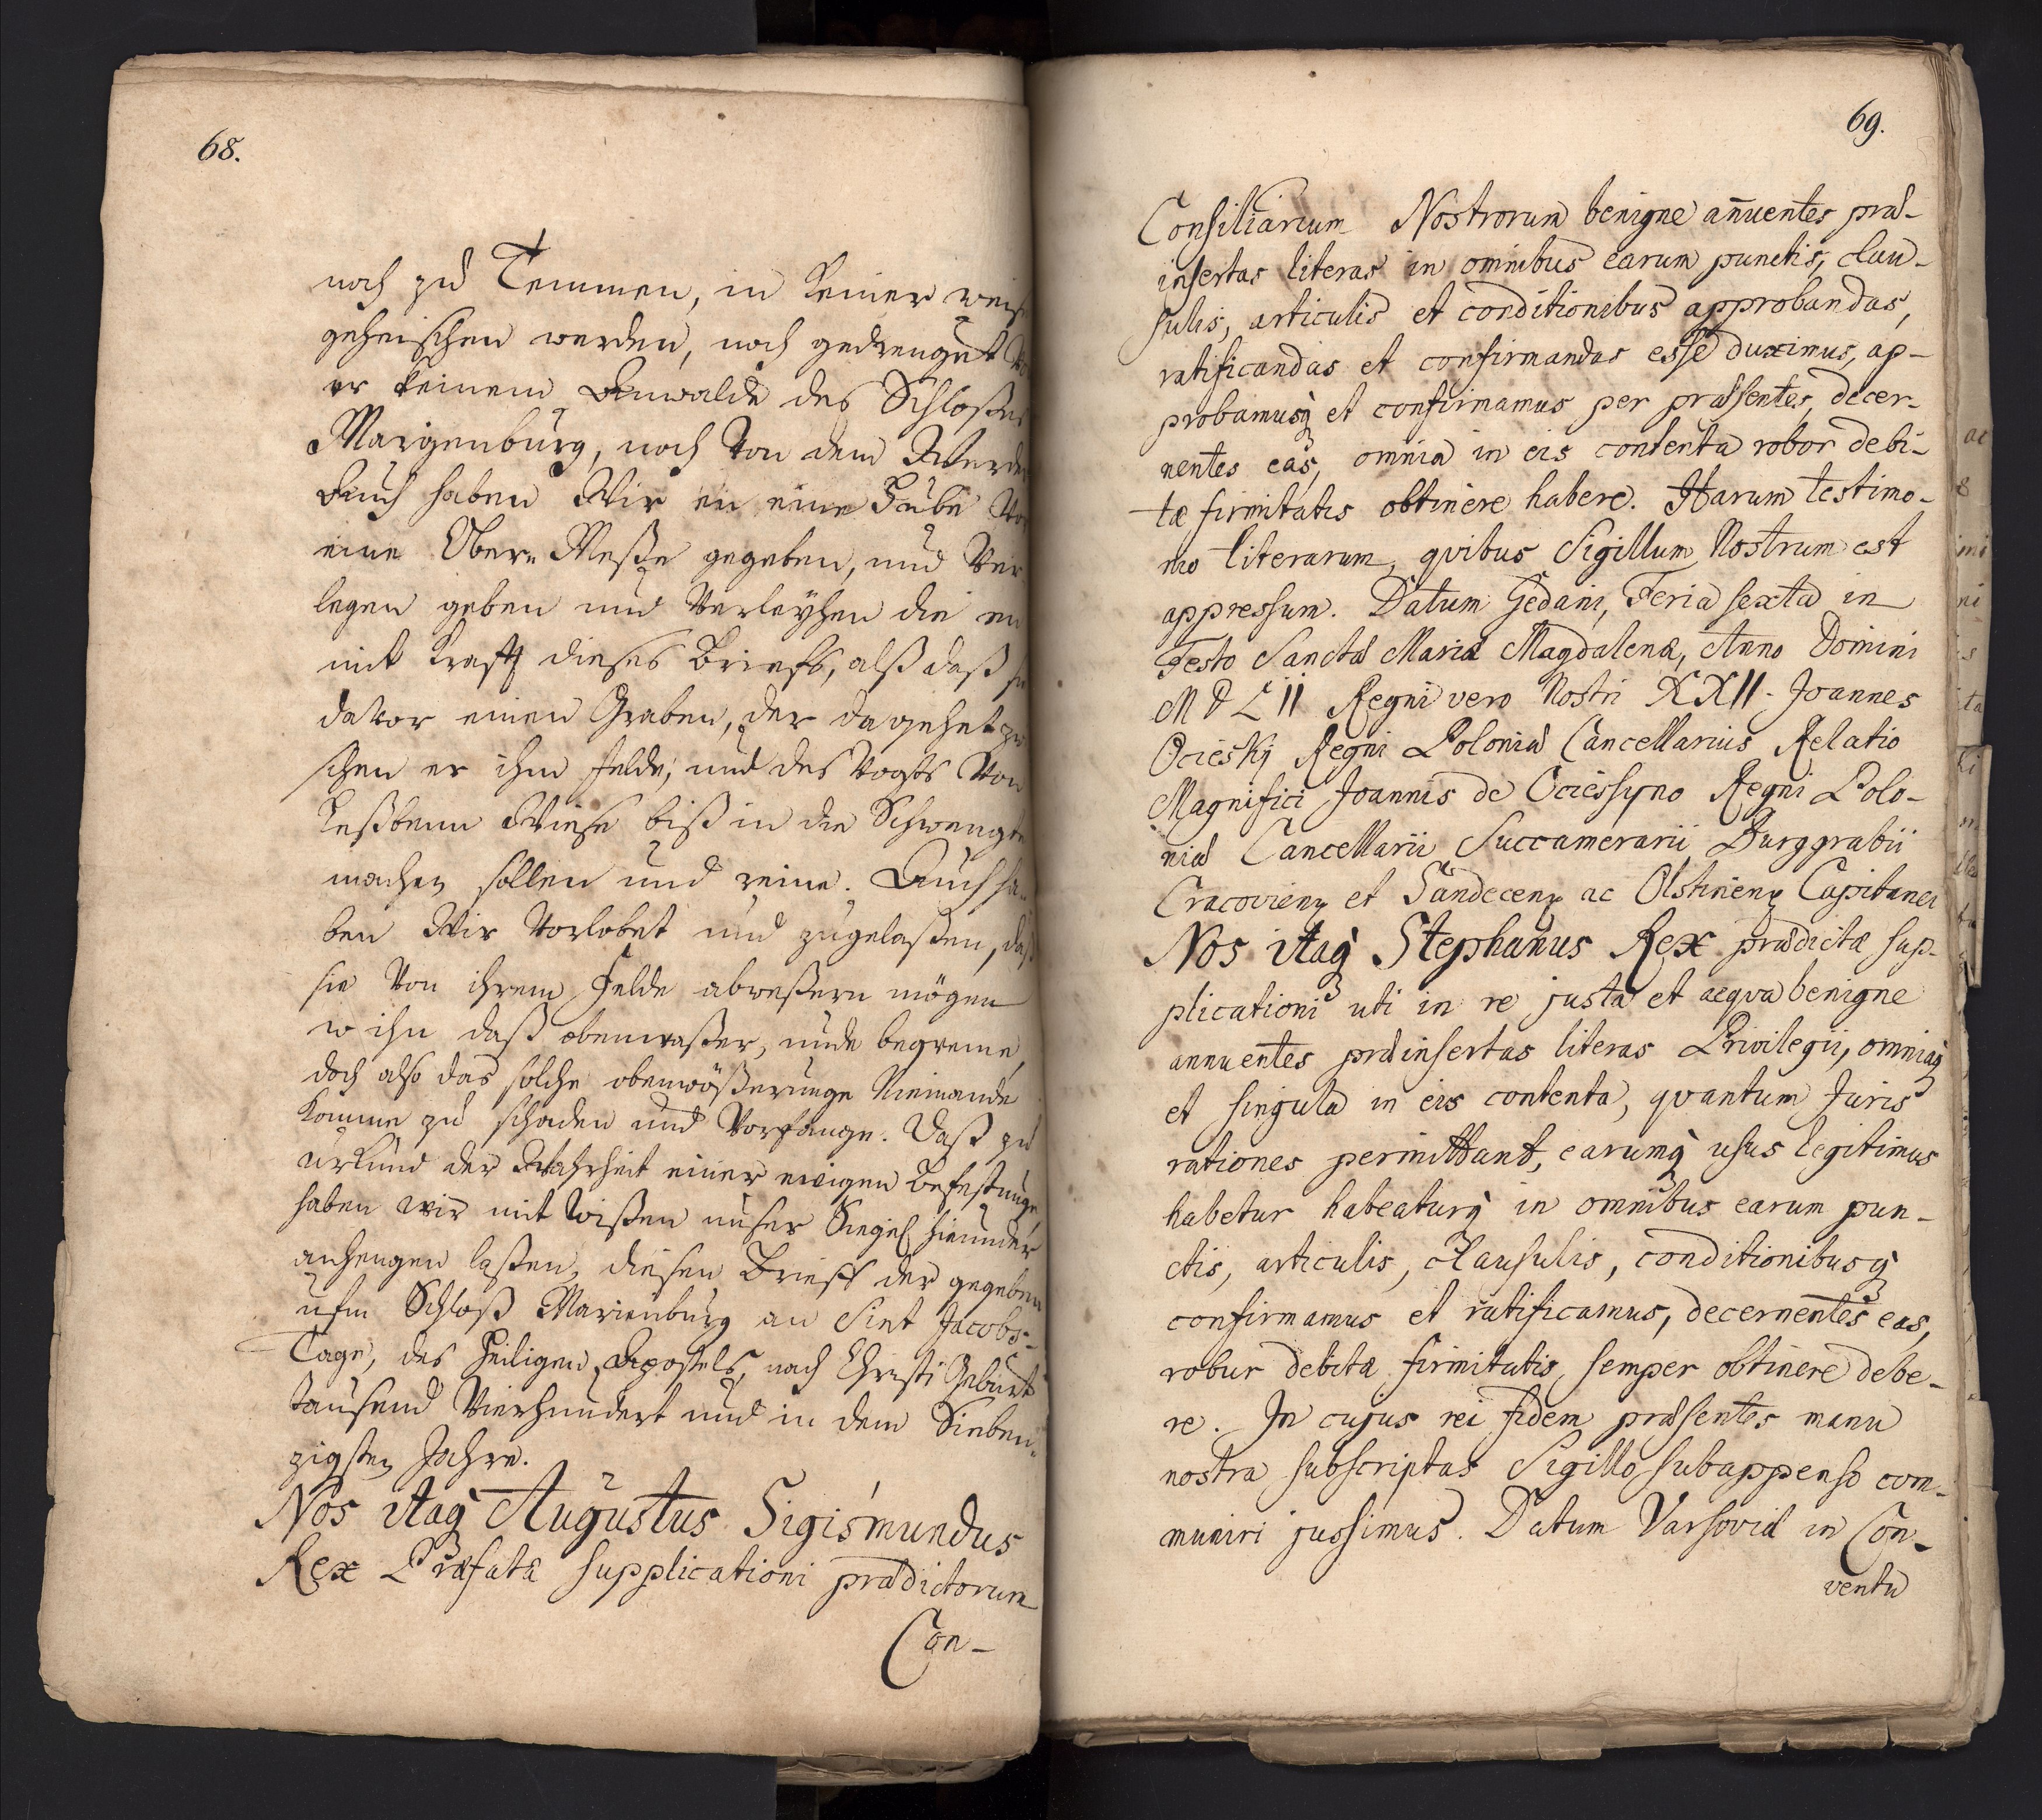 68.
noch zu Temmen, in keiner weis
geheischen werden, noch gedrenget
er keinem Anwalde des Schloßes
Margenburg, noch Von dem Werder
Auch haben Wir en eine Hube Vor
eine Ober-Maße gegeben, und Ver-
legen geben und Verleyhen die en
mit krafft dieses Brieffs, alß daß sie
davor einen Graben, der da gehet zwi
schen er ihm felde, und des Vogts Von
Leßkenn Wiese biß in die Schwengte
machen sollen und reine. Auch ha-
ben Wir Vorlobet und zugelaßen, daß
sie Von ihrem Felde abweßern mögen
w ihn daß obenwaßer, nude begreme,
doch also das solche obenwäßerunge Niemande
komme zu schaden und Vorfange. Daß zu
urkund der Wahrheit einer ewigen Befestunge,
haben wir mit Wißen unser Siegel hierunder
anhengen laßen, diesen Brieff der gegeben
ufm Schloß Marienburg an Sint Jacobs-
Tage, des heiligen Apostels, nach Christi Geburt
tausend Vierhundert und in dem Sieben-
zigsten Jahre.
Nos itaq Augustus Sigismundus
Rex Præfatæ supplicationi prædictorum
Con-
69.
Consiliarium Nostrorum benigne añuentes præ-
insertas literas in omnibus earum punctis, clau-
sulis, articulis et conditionibus approbandas,
ratificandas et confirmandas esse duximus, ap-
probamusq et confirmamus per præsentes, decer-
nentes eas, omnia in eis contenta robor debi-
tæ firmitatis obtinere habere. Harum testimo-
nio literarum, qvibus Sigillum Nostrum est
appressum. Datum Gedani, Feria sexta in
Festo Sanctæ Mariæ Magdalenæ, Anno Domini
M D L ii Regni vero Nostri XXII. Joannes
Ociesky Regni Poloniæ Cancellarius Relatio
Magnifici Joannis de Ociessyno Regni Polo-
niæ Cancellarii Succamerarii Burggrabii
Cracovienȝ et Sandecenȝ ac Olstinenȝ Capitanei
Nos itaq Stephanus Rex prædictæ sup-
plicationi uti in re justa et aeqva benigne
annuentes præinsertas literas Privilegii, omniaq
et singula in eis contenta, qvantum Juris
rationes permittant, earumq usus legitimus
habetur habeaturq in omnibus earum pun-
ctis, articulis, clausulis, conditionibusq
confirmamus et ratificamus, decernentes eas,
robur debitæ firmitatis, semper obtinere debe-
re. In cujus rei fidem præsentes manu
nostra subscriptas Sigillo subappenso com-
muniri jussimus. Datum Varsoviæ in Con-
ventu